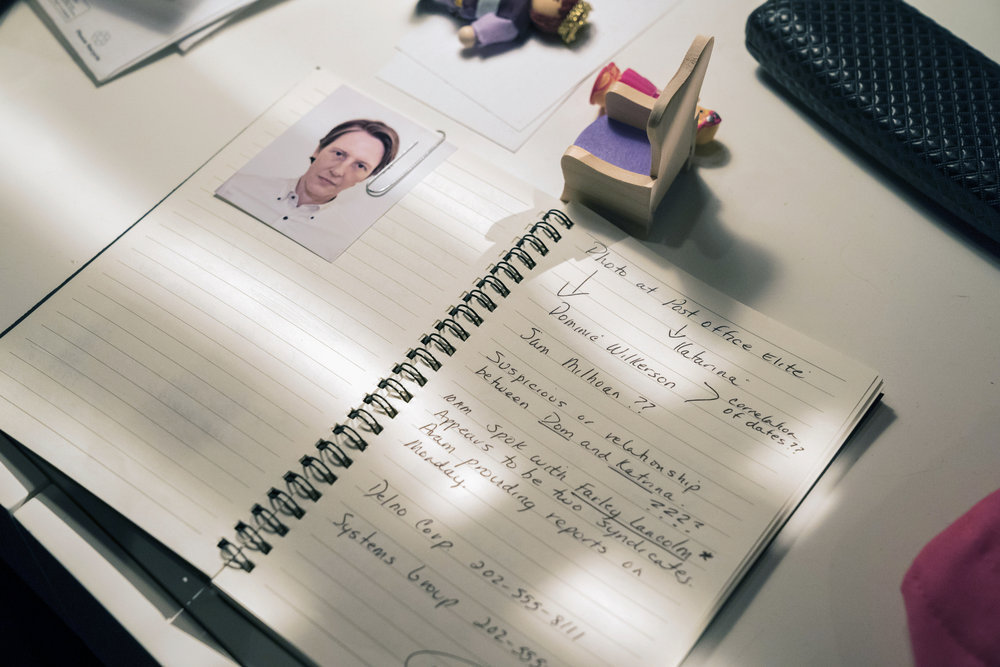 Photo at Post office Elite
Katarina
Dominic Wilkerson
correlation
of dates??
Sam Milhoan??
Suspicious or relationship
between Dom and Katrina?
????
10AM spok with Farley Lancolm *
Appears to be two syndicates.
Adam providing reports on
Monday.
Delno Corp 202-555-8111
Systems Group 202-555